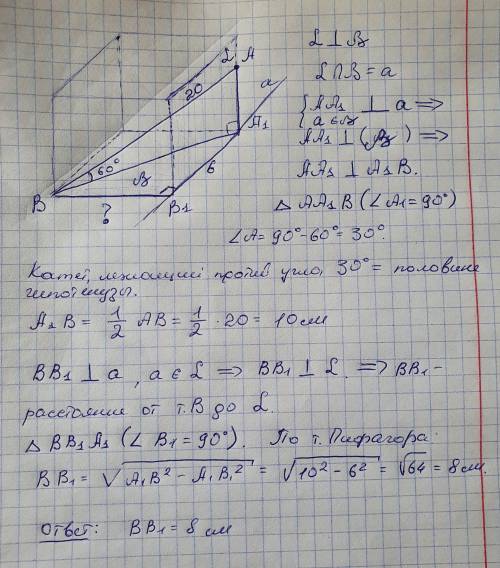 α A
20
a
A₁
60°
β
6
B
B₁
?
α ⊥ β
α ∩ β = a
{ AA₁ ⊥ a =>
a ∈ β
AA₁ ⊥ (β) =>
AA₁ ⊥ A₁B.
△ AA₁B (∠A₁ = 90°)
∠A = 90° - 60° = 30°.
Катет, лежащий против угла 30° = половине
гипотенузы.
A₁B = 1/2 AB = 1/2 · 20 = 10 см
BB₁ ⊥ a, a ∈ α => BB₁ ⊥ α. => BB₁ -
расстояние от т. B до α.
△ BB₁A₁ (∠ B₁ = 90°). По т. Пифагора:
BB₁ = √A₁B² - A₁B₁² = √10² - 6² = √64 = 8 см.
Ответ: BB₁ = 8 см